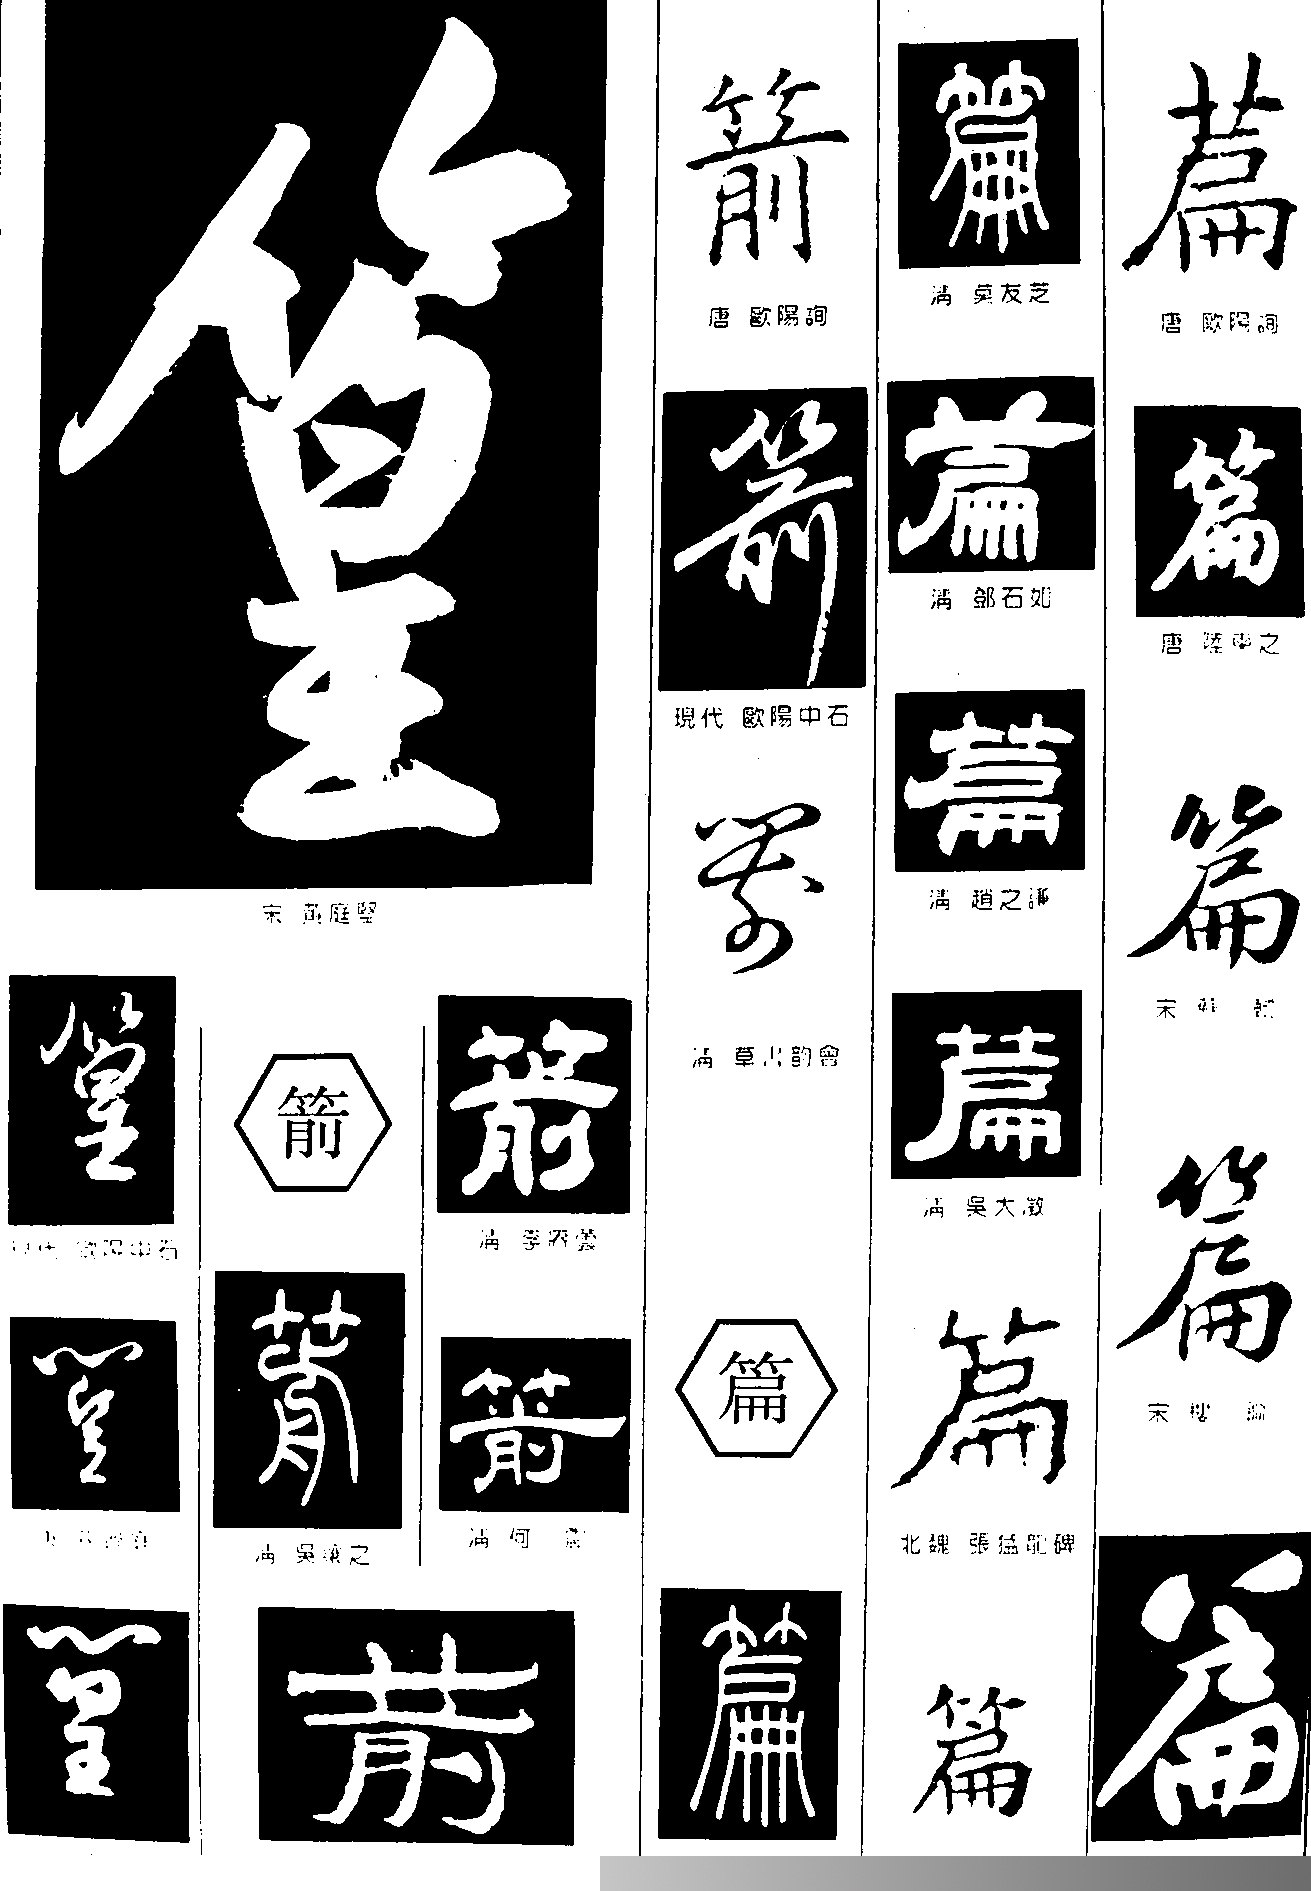 篁
宋 黃庭堅
篁
現代 歐陽中石
篁
篁
箭
箭
清 吳讓之
箭
箭
清 李
箭
清 何
箭
唐 歐陽詢
箭
現代 歐陽中石
箭
清 草書韵會
篇
篇
篇
清 莫友芝
篇
清 鄧石如
篇
清 趙之謙
篇
清 吳大澂
篇
北魏 張猛龍碑
篇
篇
唐 歐陽詢
篇
唐 陸柬之
篇
宋 蘇 軾
篇
宋 樓 鑰
篇